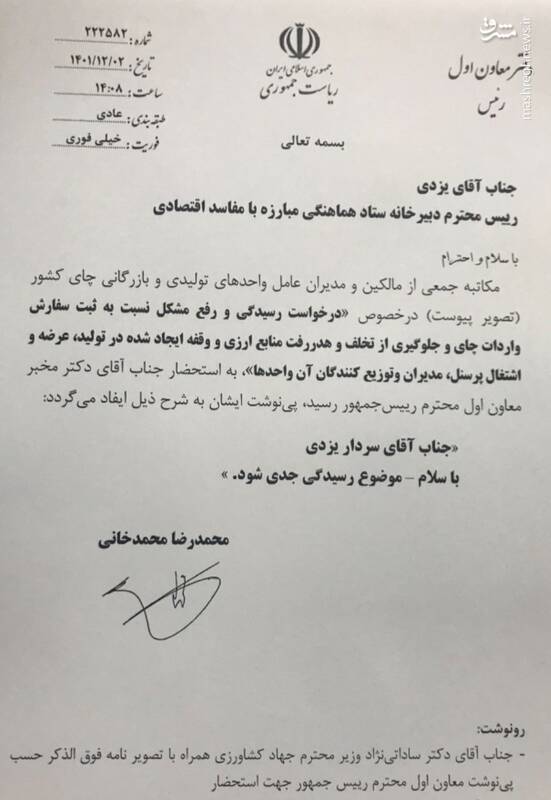 شماره: ۲۲۲۵۸۲
تاریخ: ۱۴۰۱/۱۲/۰۲
ساعت: ۱۴:۰۸
طبقه‌بندی: عادی
فوریت: خیلی فوری
جمهوری اسلامی ایران
ریاست جمهوری
معاون اول
رئیس
مشرق
mashreghnews.ir
بسمه تعالی
جناب آقای یزدی
رییس محترم دبیرخانه ستاد هماهنگی مبارزه با مفاسد اقتصادی
با سلام و احترام
مکاتبه جمعی از مالکین و مدیران عامل واحدهای تولیدی و بازرگانی چای کشور
(تصویر پیوست) درخصوص «درخواست رسیدگی و رفع مشکل نسبت به ثبت سفارش
واردات چای و جلوگیری از تخلف و هدررفت منابع ارزی و وقفه ایجاد شده در تولید، عرضه و
اشتغال پرسنل، مدیران وتوزیع کنندگان آن واحدها»، به استحضار جناب آقای دکتر مخبر
معاون اول محترم رییس‌جمهور رسید، پی‌نوشت ایشان به شرح ذیل ایفاد می‌گردد:
«جناب آقای سردار یزدی
با سلام – موضوع رسیدگی جدی شود. »
محمدرضا محمدخانی
رونوشت:
- جناب آقای دکتر ساداتی‌نژاد وزیر محترم جهاد کشاورزی همراه با تصویر نامه فوق الذکر حسب
پی‌نوشت معاون اول محترم رییس جمهور جهت استحضار